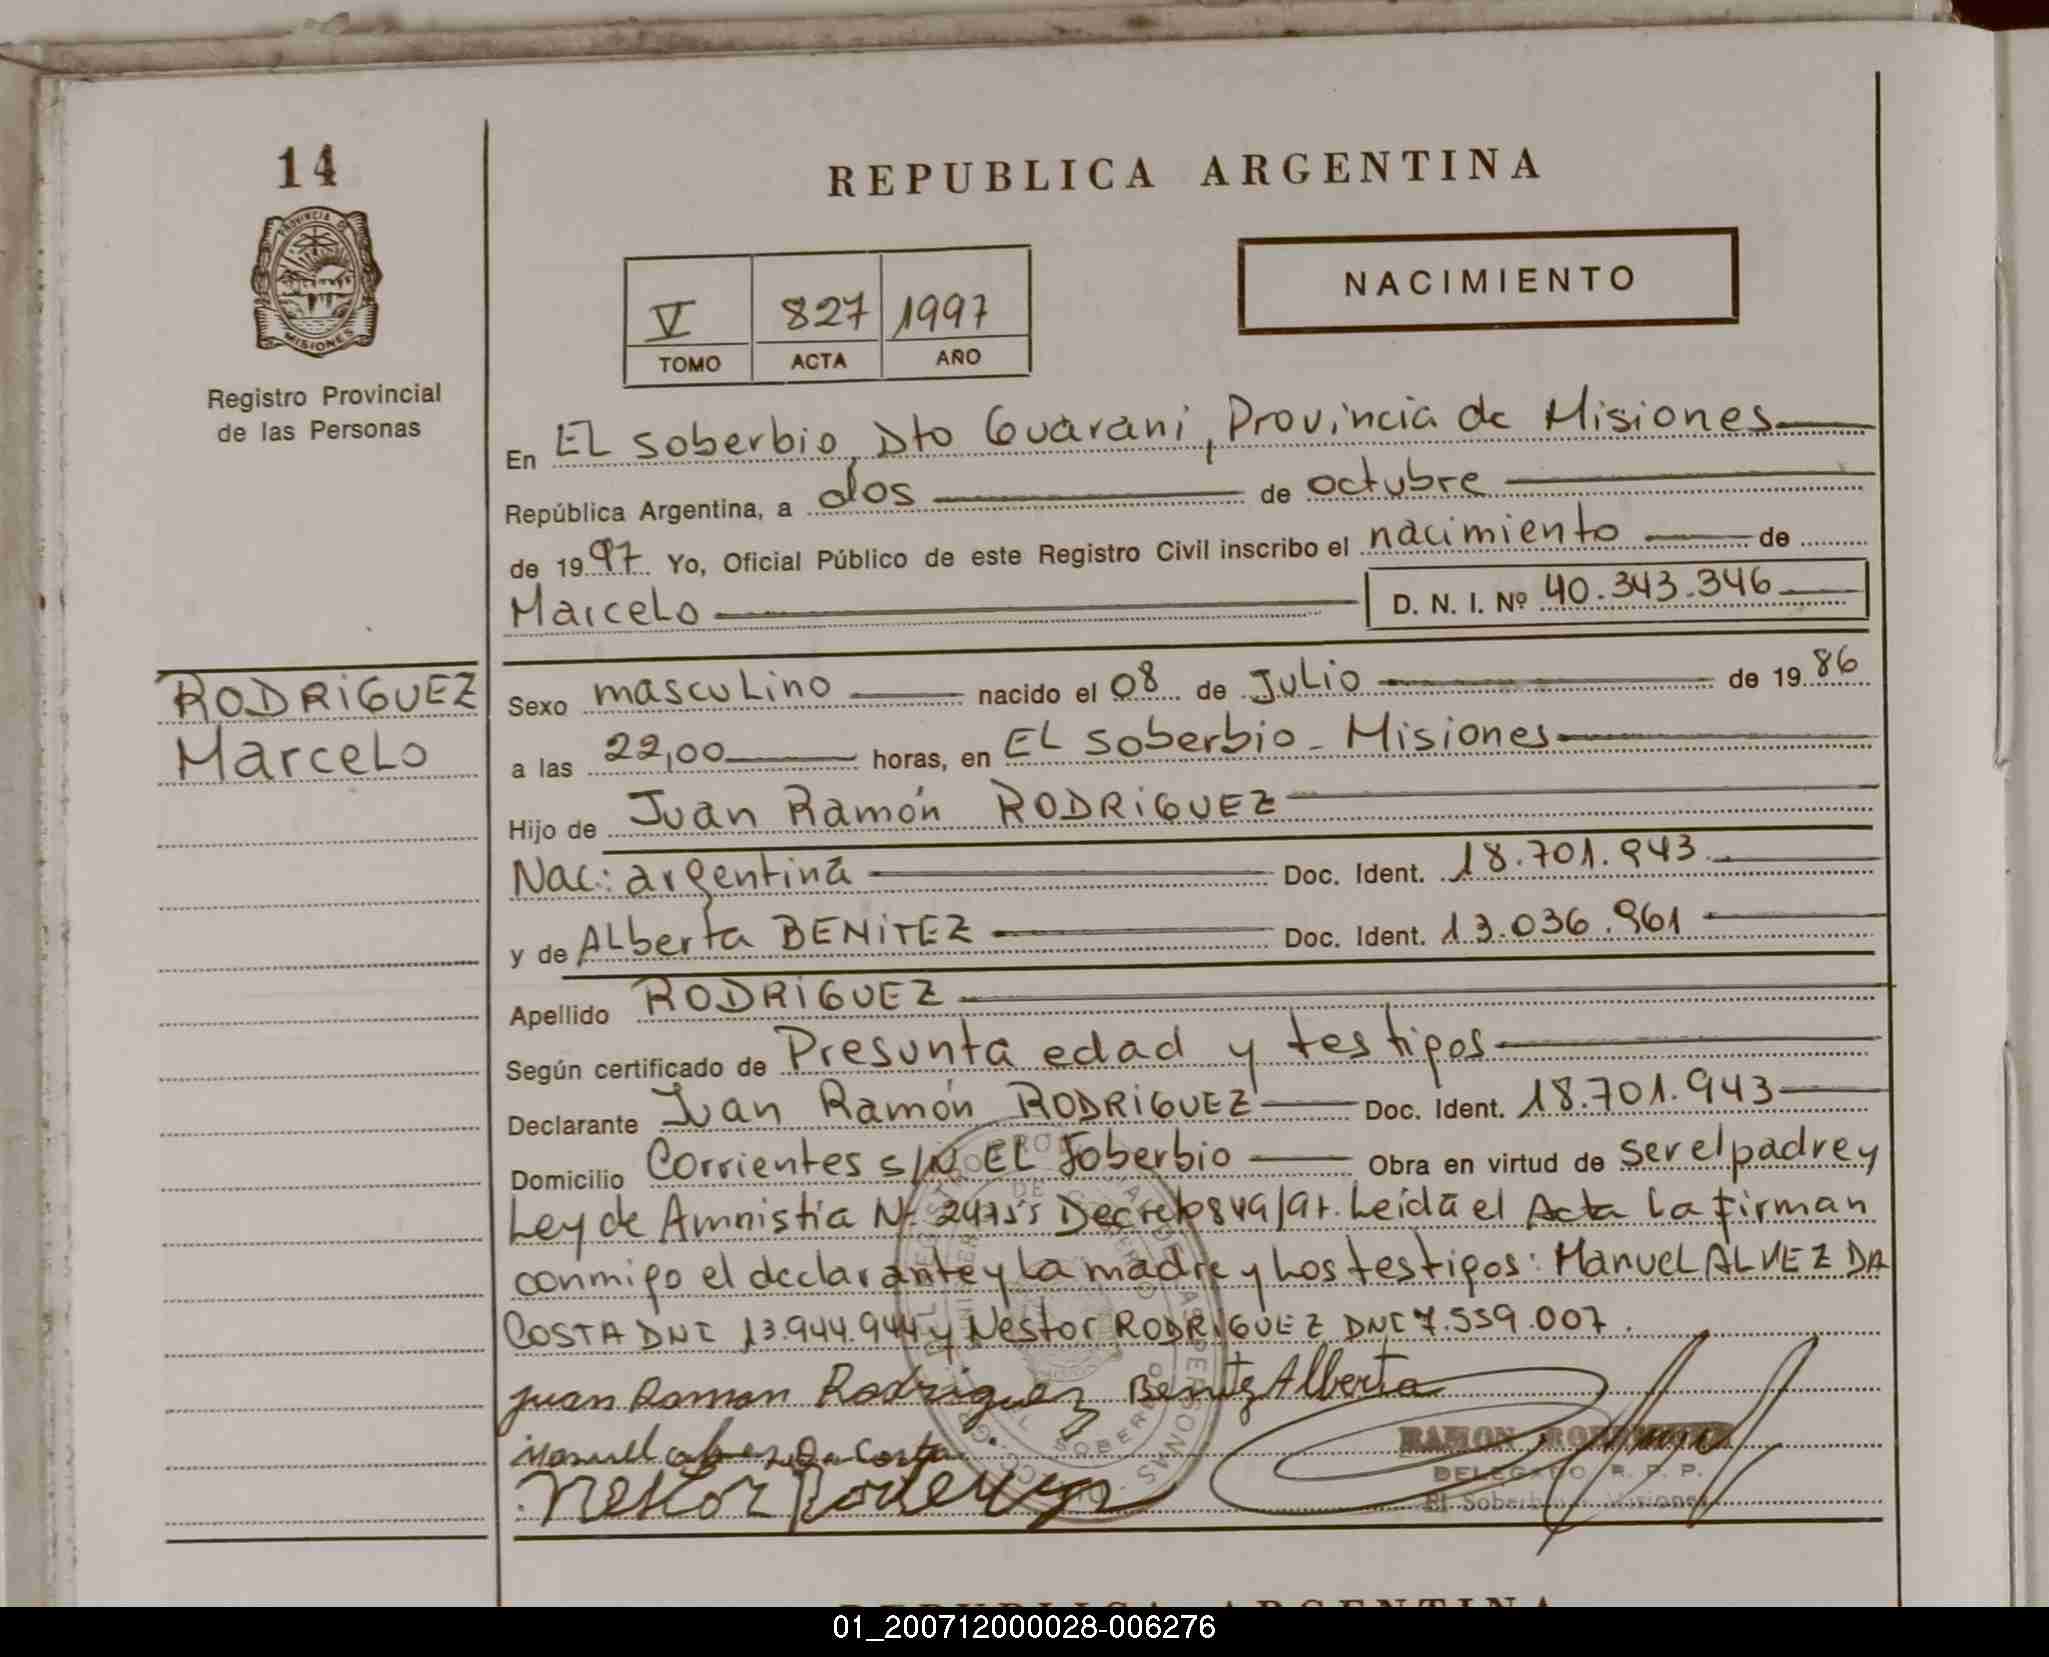 14
PROVINCIA DE
MISIONES
Registro Provincial
de las Personas
RODRIGUEZ
Marcelo
REPUBLICA ARGENTINA
V 827 1997
TOMO ACTA AÑO
NACIMIENTO
En EL Soberbio, Dto Guarani, Provincia de Misiones
República Argentina, a dos de octubre
de 1997 Yo, Oficial Público de este Registro Civil inscribo el nacimiento de
Marcelo D. N. I. Nº 40.343.346
Sexo masculino nacido el 08 de Julio de 1986
a las 22,00 horas, en EL Soberbio - Misiones
Hijo de Juan Ramón RODRIGUEZ
Nac: argentina Doc. Ident. 18.701.943
y de Alberta BENITEZ Doc. Ident. 13.036.961
Apellido RODRIGUEZ
Según certificado de Presunta edad y testigos
Declarante Juan Ramón RODRIGUEZ Doc. Ident. 18.701.943
Domicilio Corrientes s/N EL Soberbio Obra en virtud de ser el padre y
Ley de Amnistia Nº 24755 Decreto 849/97. Leída el Acta la firman
conmigo el declarante y la madre y los testigos: Manuel ALVEZ DA
COSTA DNI 13.944.944 y Nestor RODRIGUEZ DNI 7.559.007.
Juan Ramon Rodriguez Benitez Alberta
Manuel Da Costa
Nestor
RAMON
DELEGADO R. P. P.
El Soberbio Misiones
REPUBLICA ARGENTINA
01_200712000028-006276